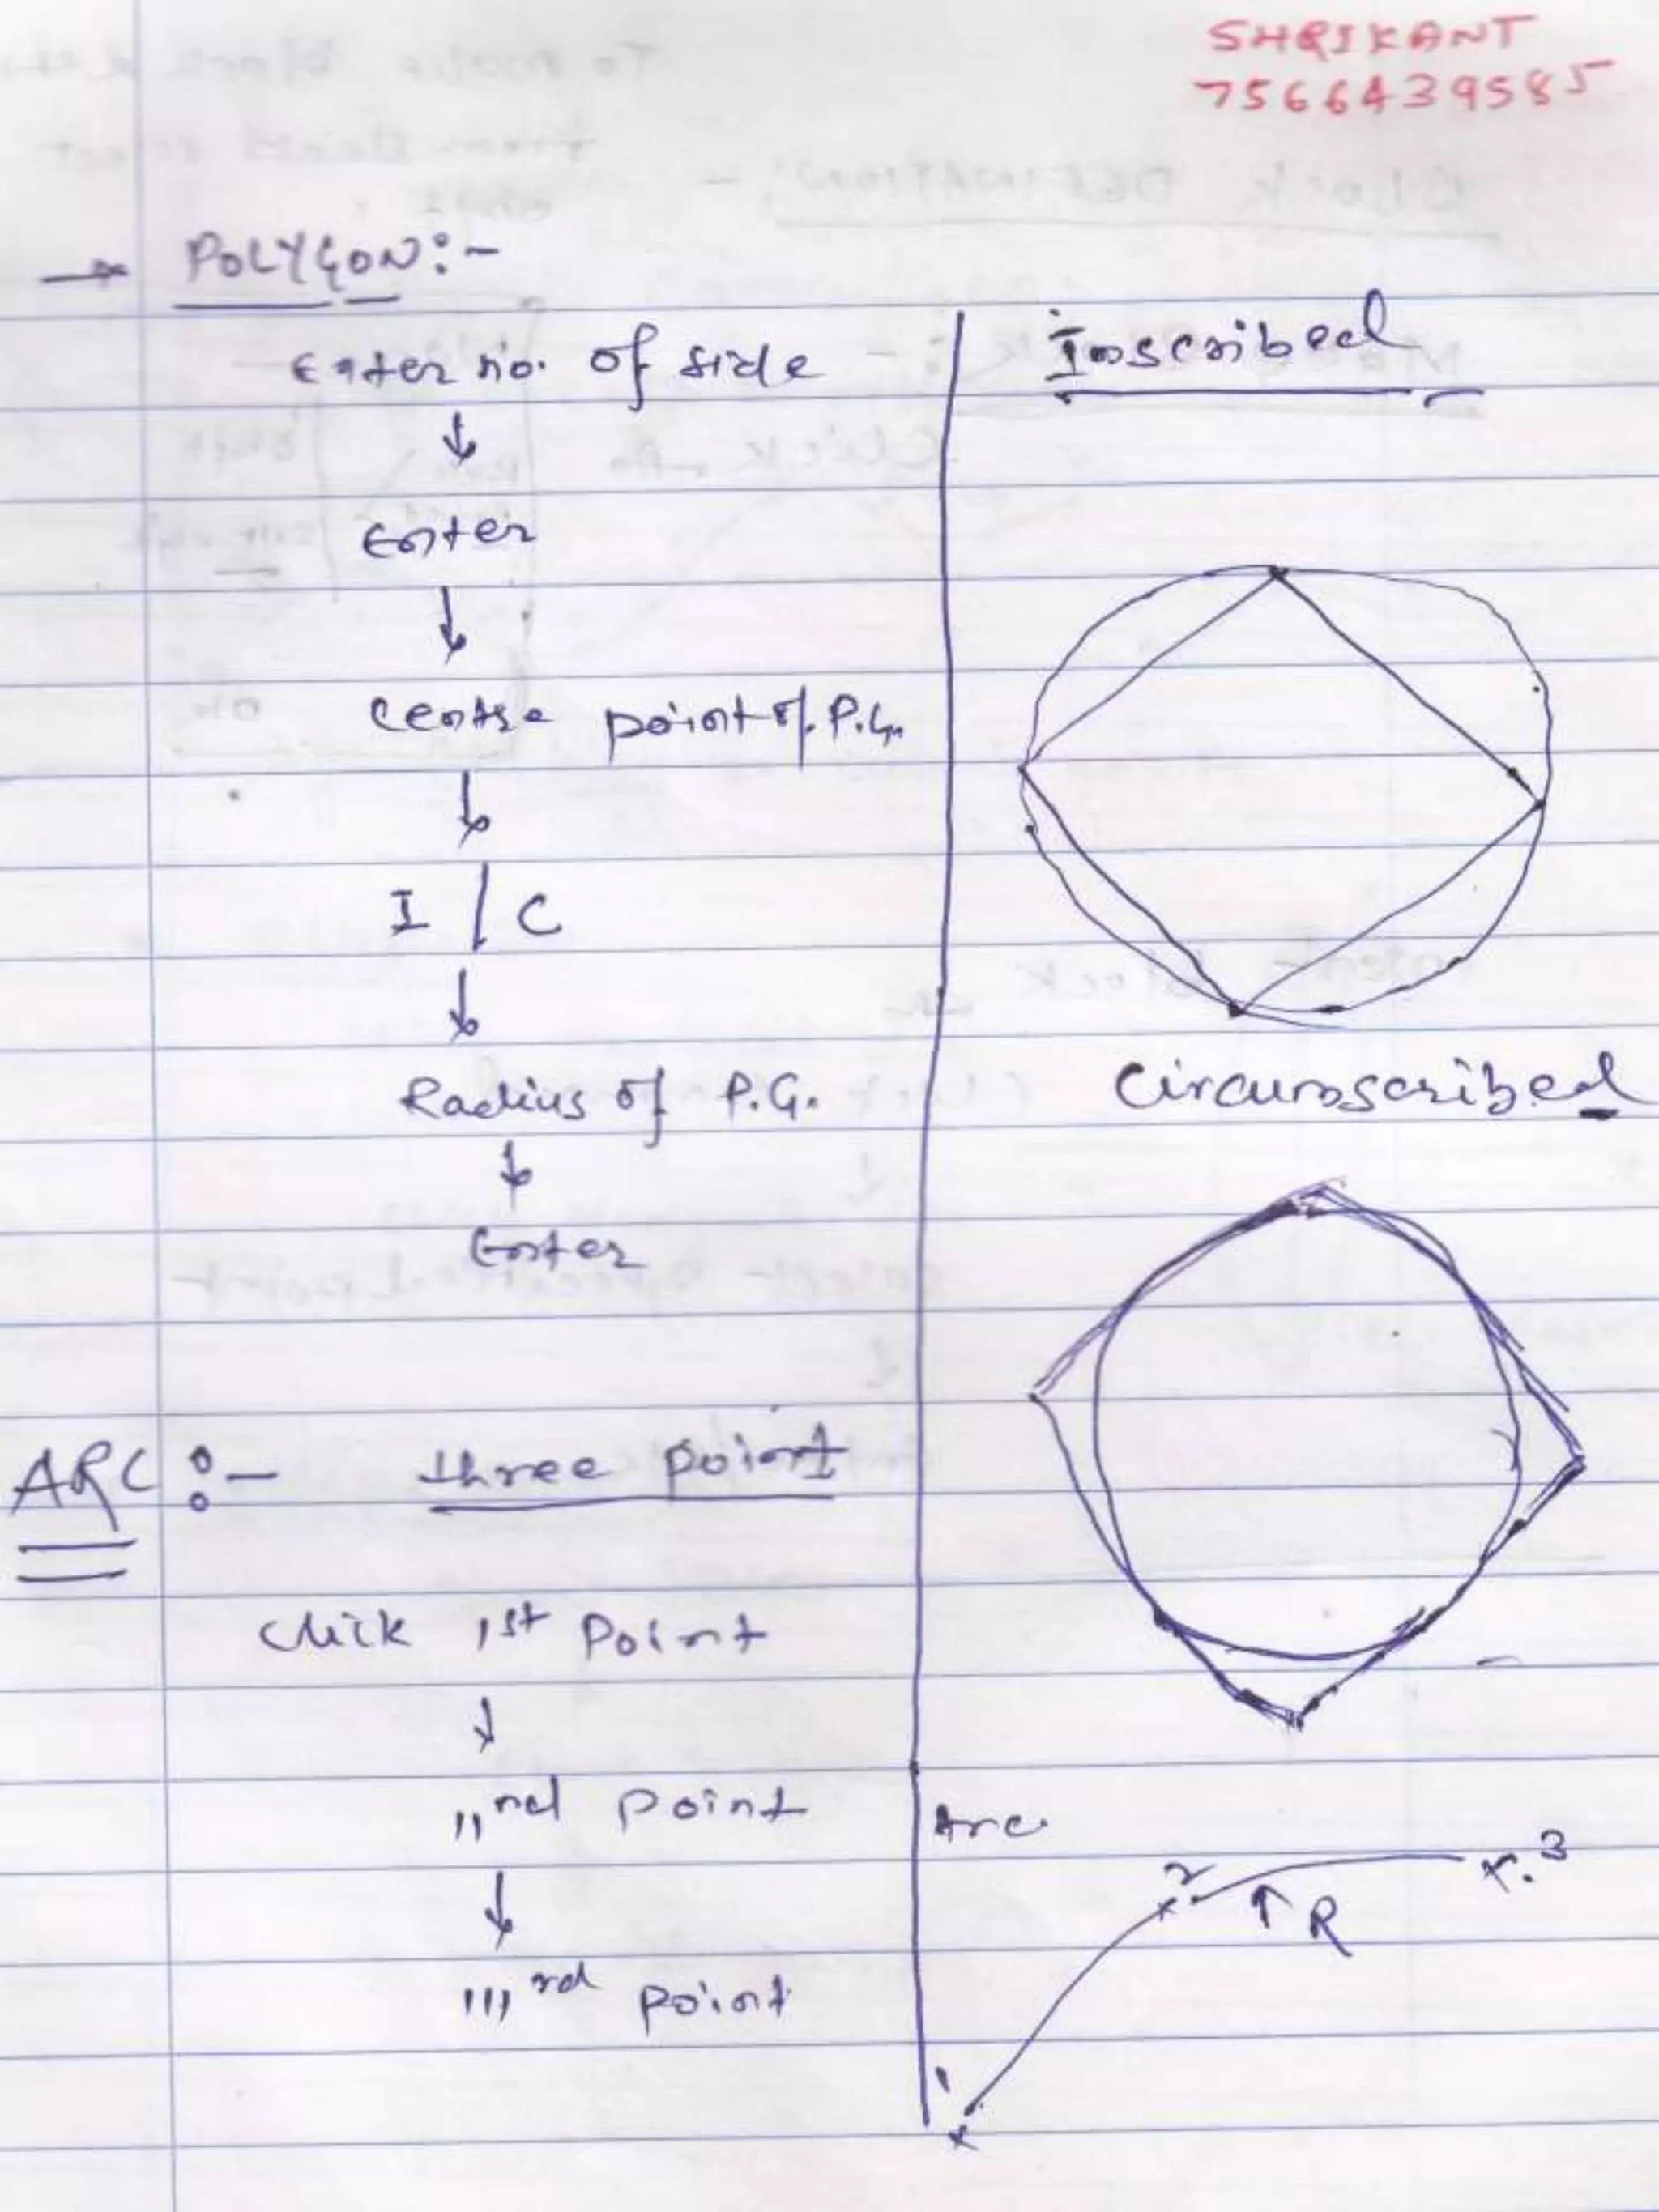 SHRIKANT
7566439585
→ POLYGON:-
Enter no. of side
↓
Enter
↓
Centre point of P.G.
↓
I / C
↓
Radius of P.G.
↓
Enter
ARC :- three point
Click 1st Point
↓
11nd point
↓
111rd point
Inscribed
Circumscribed
Arc
1
2
3
R